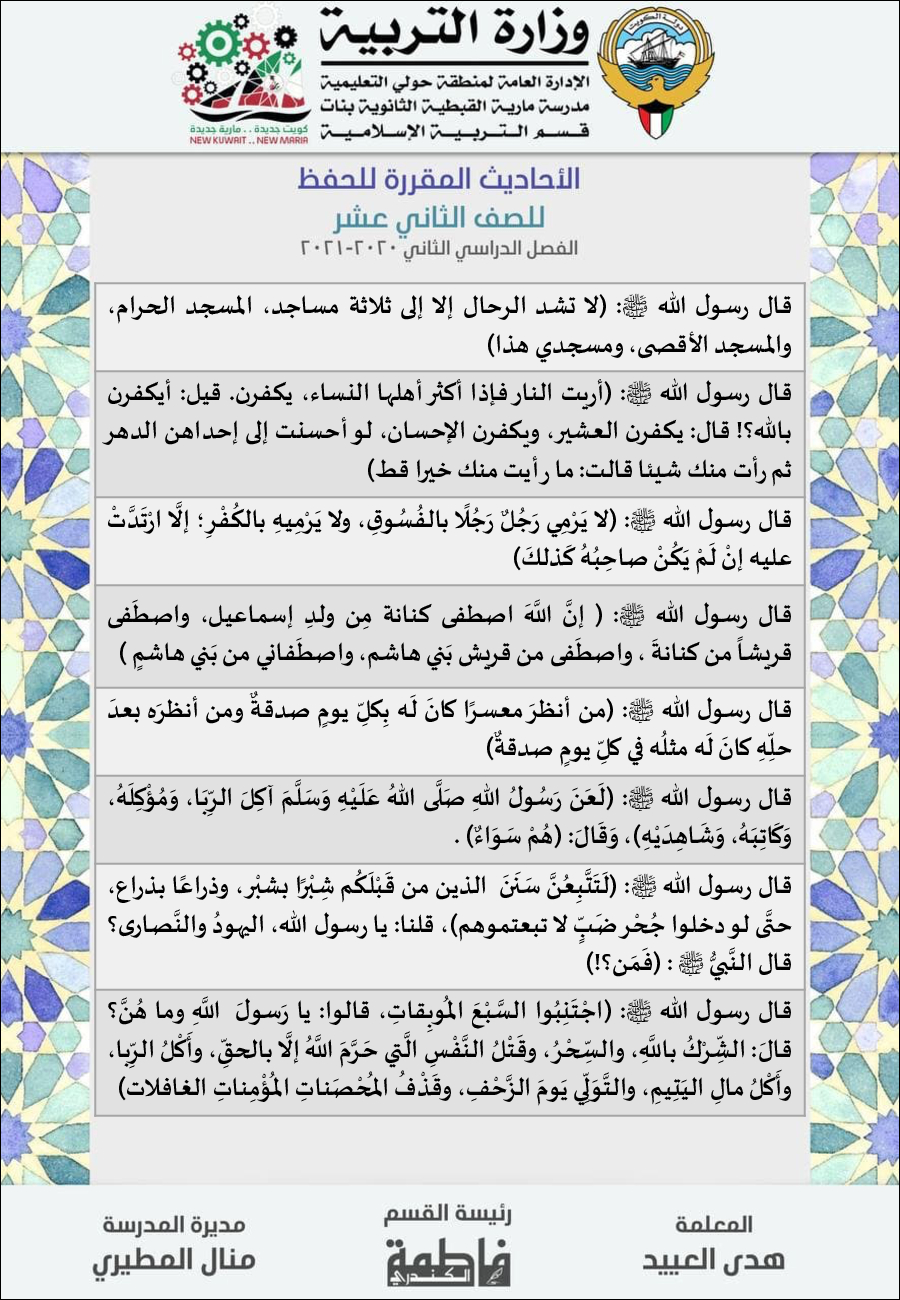 دولة الكويت
وزارة التربية
الإدارة العامة لمنطقة حولي التعليمية
مدرسة مارية القبطية الثانوية بنات
قسم التربية الإسلامية
كويت جديدة . . مارية جديدة
NEW KUWAIT .. NEW MARIA
الأحاديث المقررة للحفظ
للصف الثاني عشر
الفصل الدراسي الثاني ٢٠٢٠-٢٠٢١
قال رسول الله ﷺ: (لا تشد الرحال إلا إلى ثلاثة مساجد، المسجد الحرام،
والمسجد الأقصى، ومسجدي هذا)
قال رسول الله ﷺ: (أريت النار فإذا أكثر أهلها النساء، يكفرن. قيل: أيكفرن
بالله؟! قال: يكفرن العشير، ويكفرن الإحسان، لو أحسنت إلى إحداهن الدهر
ثم رأت منك شيئا قالت: ما رأيت منك خيرا قط)
قال رسول الله ﷺ: (لا يَرْمِي رَجُلٌ رَجُلًا بالفُسُوقِ، ولا يَرْمِيهِ بالكُفْرِ؛ إلَّا ارْتَدَّتْ
عليه إنْ لَمْ يَكُنْ صاحِبُهُ كَذلكَ)
قال رسول الله ﷺ: ( إنَّ اللَّهَ اصطفى كنانة مِن ولدِ إسماعيل، واصطَفى
قريشاً من كنانةَ ، واصطَفى من قريش بَني هاشم، واصطَفاني من بَني هاشمٍ )
قال رسول الله ﷺ: (من أنظرَ معسرًا كانَ لَه بِكلِّ يومٍ صدقةٌ ومن أنظرَه بعدَ
حلِّهِ كانَ لَه مثلُه في كلِّ يومٍ صدقةٌ)
قال رسول الله ﷺ: (لَعَنَ رَسُولُ اللهِ صَلَّى اللهُ عَلَيْهِ وَسَلَّمَ آكِلَ الرِّبَا، وَمُؤْكِلَهُ،
وَكَاتِبَهُ، وَشَاهِدَيْهِ)، وَقَالَ: (هُمْ سَوَاءٌ) .
قال رسول الله ﷺ: (لَتَتَّبِعُنَّ سَنَنَ الذين من قَبْلَكُم شِبْرًا بشبْر، وذراعًا بذراع،
حتَّى لو دخلوا جُحْر ضَبٍّ لا تبعتموهم)، قلنا: يا رسول الله، اليهودُ والنَّصارى؟
قال النَّبيُّ ﷺ : (فَمَن؟!)
قال رسول الله ﷺ: (اجْتَنِبُوا السَّبْعَ المُوبِقاتِ، قالوا: يا رَسولَ اللَّهِ وما هُنَّ؟
قالَ: الشِّرْكُ باللَّهِ، والسِّحْرُ، وقَتْلُ النَّفْسِ الَّتي حَرَّمَ اللَّهُ إلَّا بالحقِّ، وأَكْلُ الرِّبا،
وأَكْلُ مالِ اليَتِيمِ، والتَّوَلِّي يَومَ الزَّحْفِ، وقَذْفُ المُحْصَناتِ المُؤْمِناتِ الغافلات)
المعلمة
هدى العبيد
رئيسة القسم
فاطمة
الكندري
مديرة المدرسة
منال المطيري